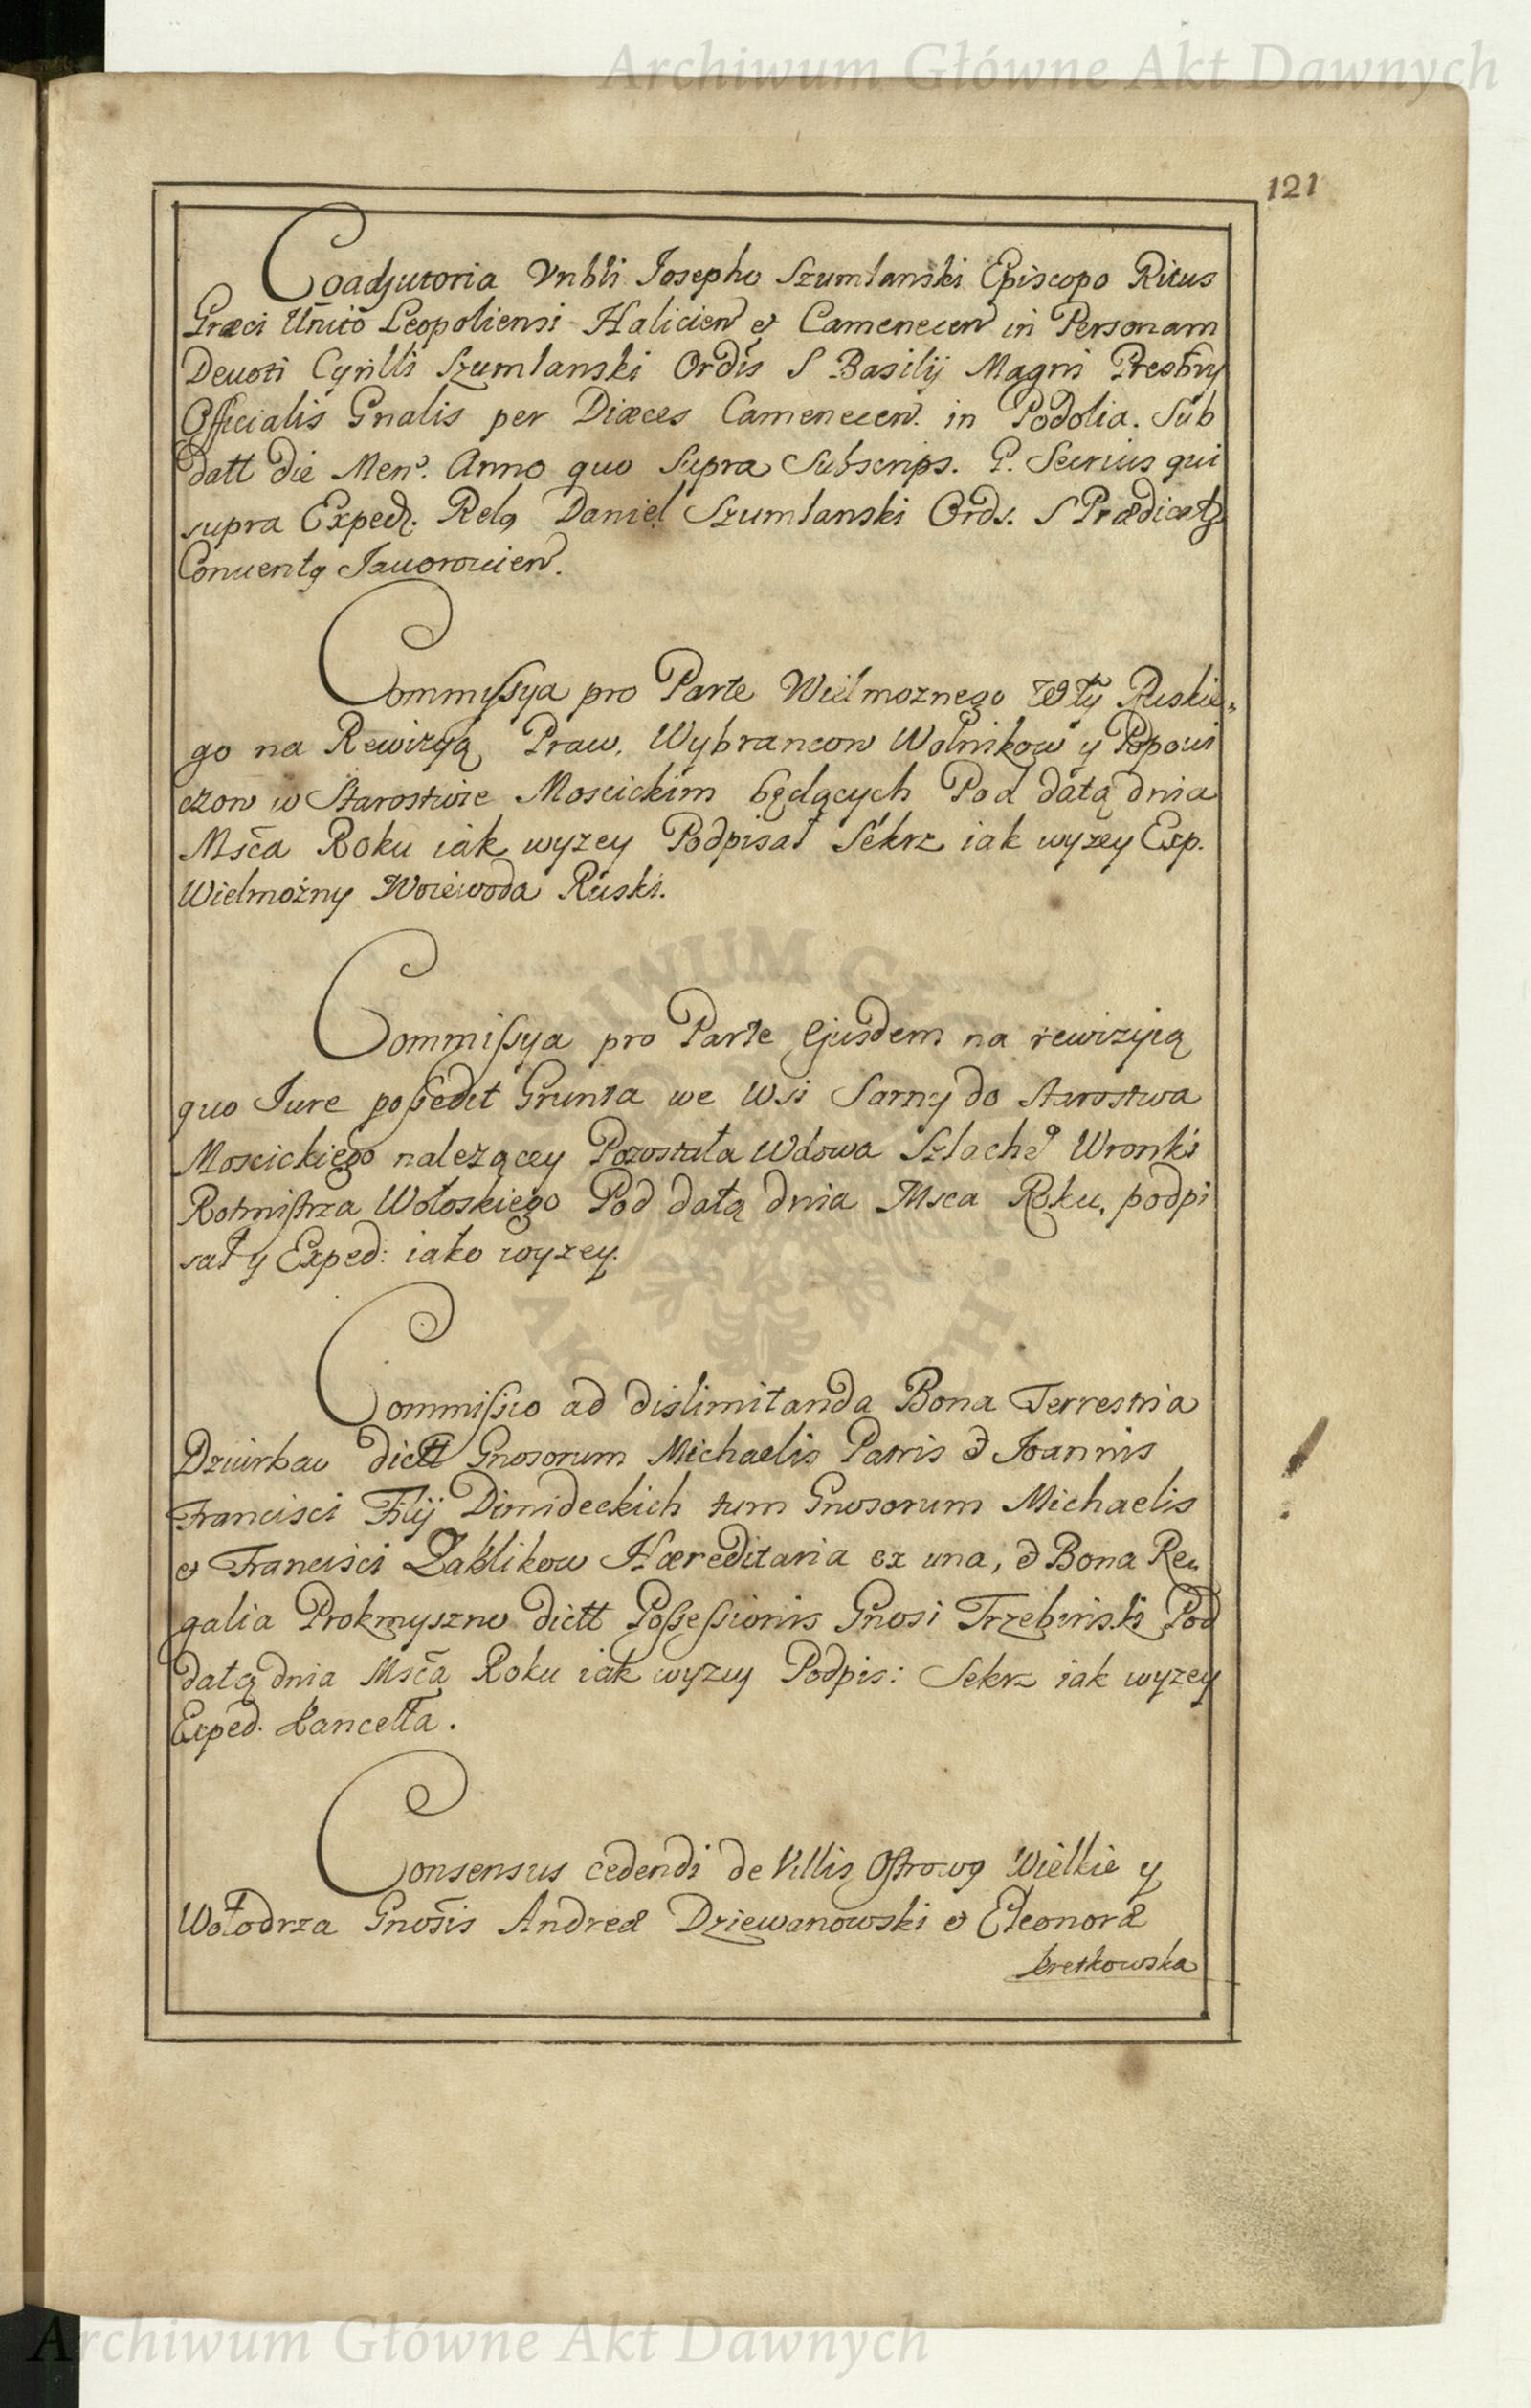 Archiwum Główne Akt Dawnych
121
Coadjutoria Vnbli Josepho Szumlanski Episcopo Ritus
Græci Unito Leopoliensi Halicien et Camenecen in Personam
Deuoti Cyrilli Szumlanski Ordis S Basilij Magni Presbry
Officialis Gnalis per Diæces Camenecen. in Podolia. Sub
datt die Men. Anno quo Supra Subscrips. P. Secrius qui
supra Exped. Relg Daniel Szumlanski Ords. S Prædicat
Conuentg Jauorowien.
Commissya pro Parte Wielmoznego Wdy Ruskie„
go na Rewizyą Praw, Wybrancow Wolnikow y Popowi
czow w Starostwie Moscickim będących Pod datą dnia
Msca Roku iak wyzey Podpisał Sekrz iak wyzey Exp.
Wielmożny Woiewoda Ruski.
Commissya pro Parte Ejusdem na rewizyią
quo Jure possedit Grunta we Wsi Sarny do Starostwa
Moscickiego nalezącey Pozostała Wdowa Szlache Wronki
Rotmistrza Wołoskiego Pod datą dnia Msca Roku, podpi
sał y Exped: iako wyzey.
Commissio ad dislimitanda Bona Terrestria
dictt Gnosorum Michaelis Patris et Joannis
Francisci Filij Dimideckich tum Gnosorum Michaelis
et Francisci Zaklikow Hæreditaria ex una, et Bona Re„
galia Prokmyszno dictt Possessionis Gnosi Trzebinski Pod
datą dnia Msca Roku iak wyzey Podpis: Sekrz iak wyzey
Exped. Kancella.
Consensus cedendi de Villis Ostrowy Wielkie y
Wołodrza Gnosis Andreæ Dziewanowski et Eleonoræ
Kretkowska
ARCHIWUM GŁÓWNE AKT DAWNYCH
Archiwum Główne Akt Dawnych